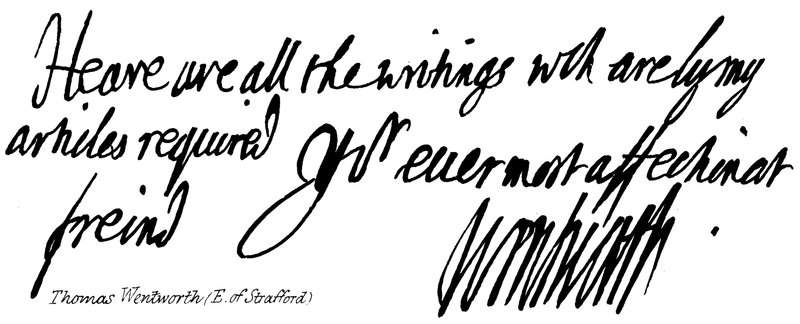 Heare are all the writings wch are by my
articles required Yor euer most affectinat
freind Wentworth.
Thomas Wentworth (E. of Strafford)